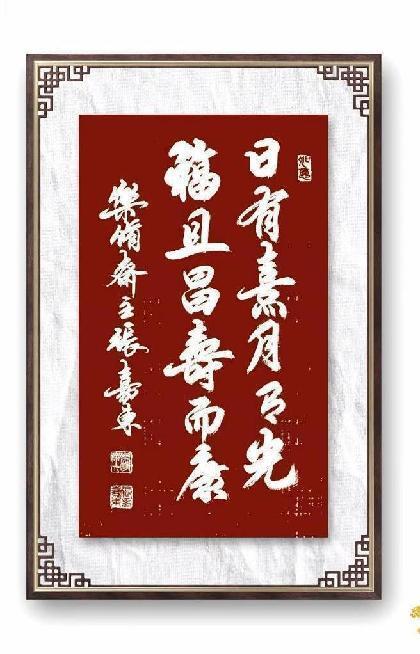 日有熹月有光
福且昌壽而康
樂脩齋主張嘉東